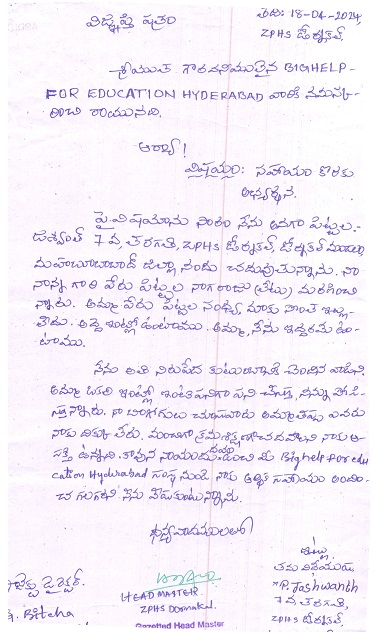 విజ్ఞప్తి పత్రం
తేది: 18-04-2024,
ZPHS డోర్నకల్.
శ్రీయుత గౌరవనీయులైన BIGHELP-
FOR EDUCATION HYDERABAD వారికి నమస్క-
రించి రాయునది.
ఆర్యా!
విషయం: సహాయం కొరకు
అభ్యర్థన.
పై విషయాను సారం నేను అనగా పిట్టల.-
జశ్వంత్ 7వ తరగతి, ZPHS డోర్నకల్, డోర్నకల్ మండలం
మహబూబాబాద్ జిల్లా నందు చదువుతున్నాను. నా
నాన్న గారి పేరు పిట్టల నాగరాజు (లేటు) మరణించి
న్నారు. అమ్మ పేరు పిట్టల సంధ్య మాకు సొంత ఇల్లు
లేదు. అద్దె ఇంట్లో ఉంటాము. అమ్మ, నేను ఇద్దరమే ఉం-
టాము.
నేను అతి నిరుపేద కుటుంబానికి చెందిన వాడిని.
అమ్మ ఒకరి ఇంట్లో ఇంటిపనిగా పని చేస్తూ, నన్ను పోషి-
స్తున్నారు. నా బాగోగులు చూసేవారు అమ్మ తప్ప ఎవరు
నాకు దిక్కు లేరు. మంచిగా క్రమశిక్షణతో చదవాలని నాకు ఆ-
సక్తి ఉన్నది. కావున నాయందు దయ ఉంచి మీ Bighelp for edu
cation Hyderabad సంస్థ నుండి నాకు ఆర్థిక సహాయం అందిం-
చ గలరని నేను వేడుకుంటున్నాను.
ధన్యవాదములతో
ఇట్లు
తమ విధేయుడు
P. Jashwanth
7వ తరగతి,
ZPHS డోర్నకల్.
డైరెక్టర్.
Bitcha
HEAD MASTER
ZPHS Dornakal.
Gazetted Head Master